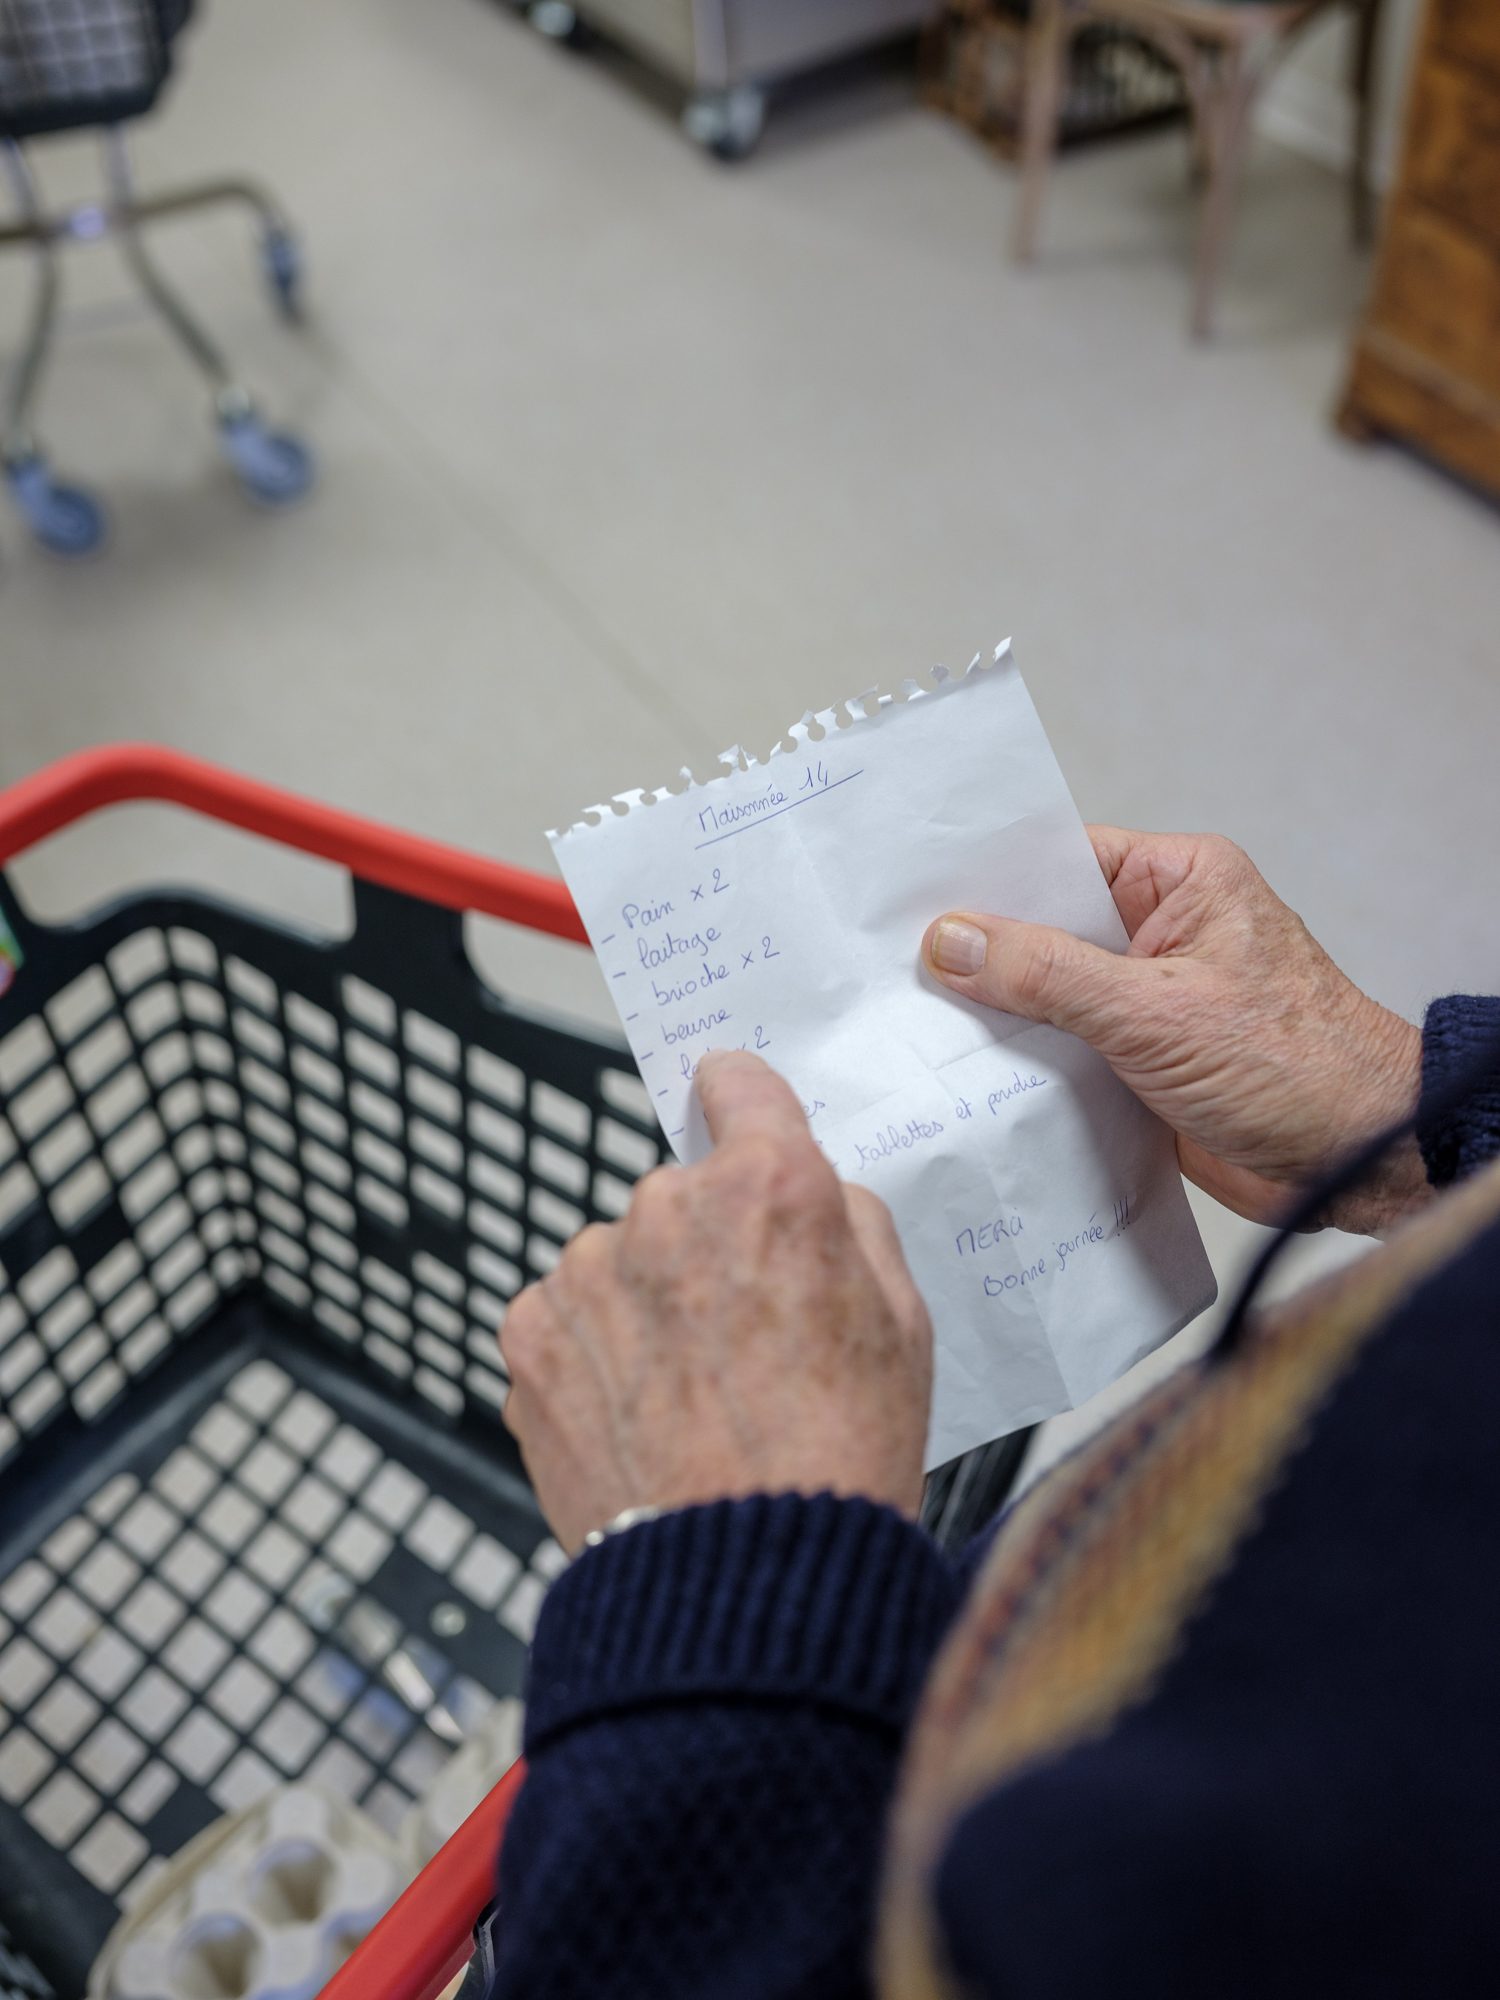 Maisonnée 14
- Pain x 2
- laitage
- brioche x 2
- beurre
- x 2
-
- tablettes et poudre
MERCI
Bonne journée !!!